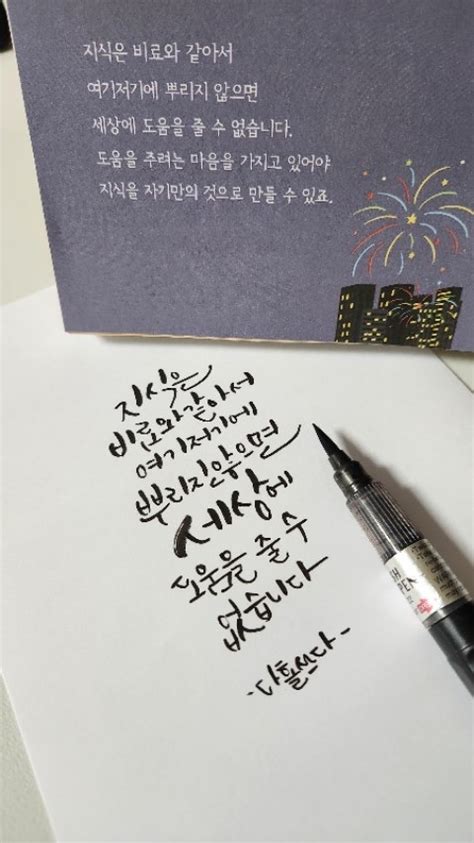 지식은 비료와 같아서
여기저기에 뿌리지 않으면
세상에 도움을 줄 수 없습니다.
도움을 주려는 마음을 가지고 있어야
지식을 자기만의 것으로 만들 수 있죠.
지식은
비료와같아서
여기저기에
뿌리진않으면
세상에
도움을 줄 수
없습니다
-다흘쓰다-
PEN